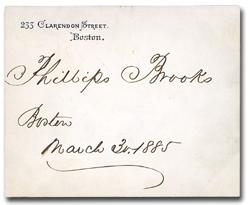 233 Clarendon Street.
Boston.
Phillips Brooks
Boston
March 30, 1885